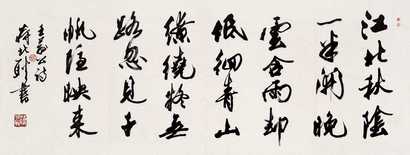 江北秋陰
一半開晚
雲含雨却
低徊青山
繚繞疑無
路忽見千
帆隱映來
王安石詩